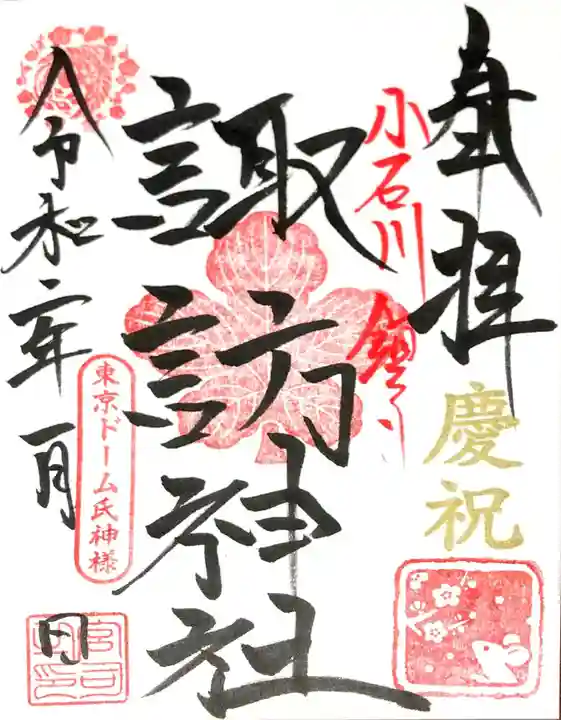 奉拝
慶祝
小石川 鎮守
諏訪神社
令和二年一月 日
東京ドーム氏神様